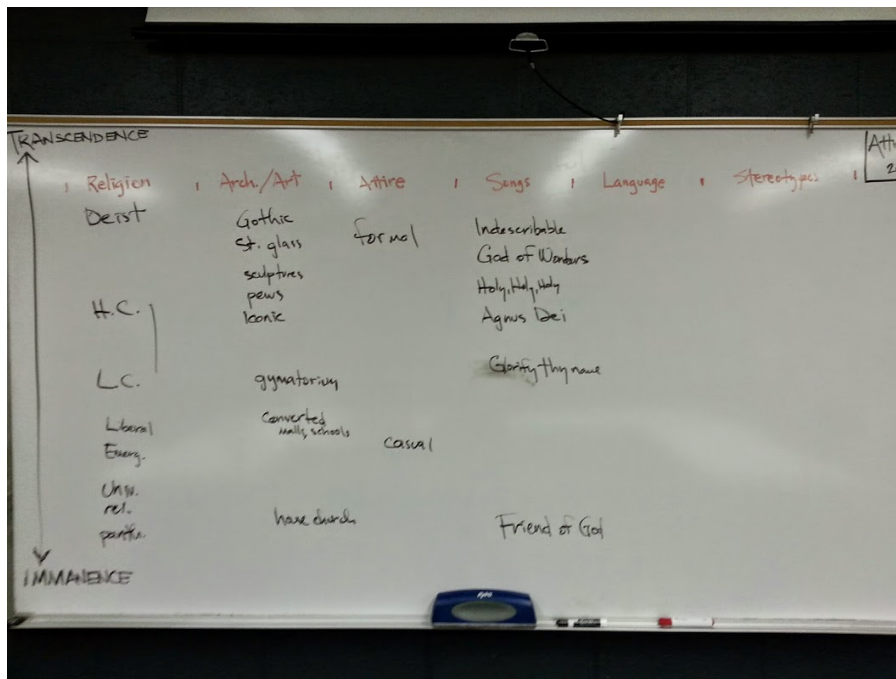 TRANSCENDENCE
Religion Arch./Art Attire Songs Language Stereotypes
Deist
H.C.
L.C.
Liberal
Emerg.
Univ.
rel.
panthe.
IMMANENCE
Gothic
St. glass
sculptures
pews
Iconic
gymatorium
Converted
malls, schools
house church
formal
casual
Indescribable
God of Wonders
Holy, Holy, Holy
Agnus Dei
Glorify thy name
Friend of God
Att
2
expo